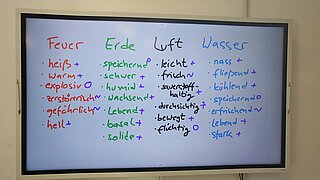 Feuer
heiß +
warm +
explosiv o
zerstörerisch ~
gefährlich ~
hell +
Erde
speichernd o
schwer +
humid +
wachsend +
lebend +
basal +
solide +
Luft
leicht +
frisch ~
sauerstoff-
haltig +
durchsichtig +
bewegt +
flüchtig o
Wasser
nass +
fließend +
kühlend +
speichernd o
erfrischend ~
lebend +
stark +